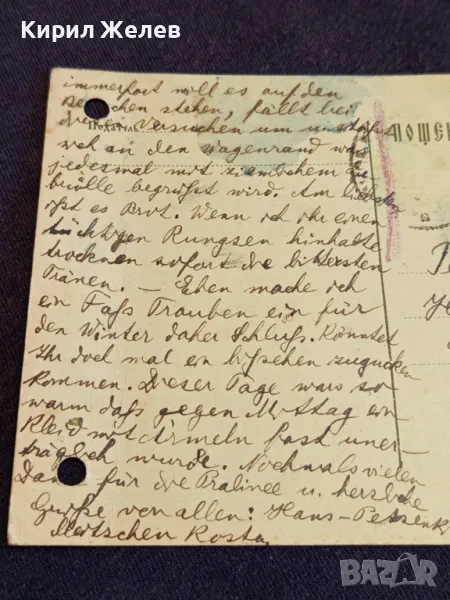 Кирил Желев
immerfort will es auf den
stehen, fällt bei
Versuchen um
weh an den Wagenrand
jedesmal mit ziemlichem
begrüßt wird. Am
ist es Brot. Wenn ich ihr einen
hinhalte
trocknen sofort die bittersten
Tränen. — Eben mache ich
ein Faß Trauben ein für
den Winter daher Schluß. Könntet
Ihr doch mal ein bißchen zugucken
kommen. Dieser Tage wars so
warm daß gegen Mittag ein
Kleid mit Ärmeln fast uner-
träglich wurde. Nochmals vielen
Dank für die Pralinee u. herzliche
Grüße von allen: Hans-
ПОЩЕН
BAZAR
bg